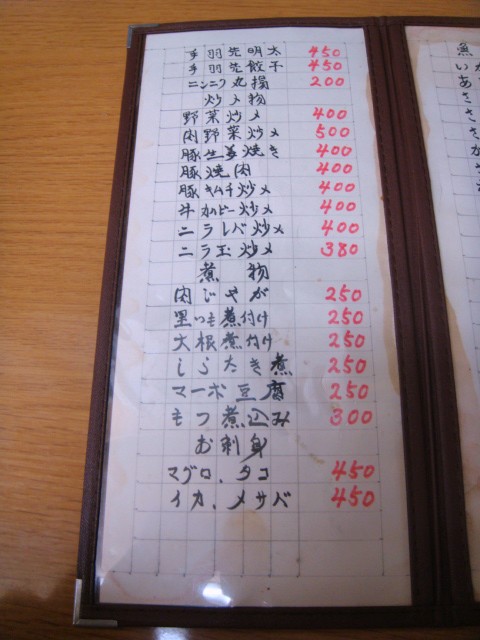 手羽先明太 450
手羽先餃子 450
ニンニク丸揚 200
炒メ物
野菜炒メ 400
肉野菜炒メ 500
豚生姜焼き 400
豚焼肉 400
豚キムチ炒メ 400
牛カルビー炒メ 400
ニラレバ炒メ 400
ニラ玉炒メ 380
煮物
肉じゃが 250
里いも煮付け 250
大根煮付け 250
しらたき煮 250
マーボ豆腐 250
もつ煮込み 300
お刺身
マグロ、タコ 450
イカ、メサバ 450